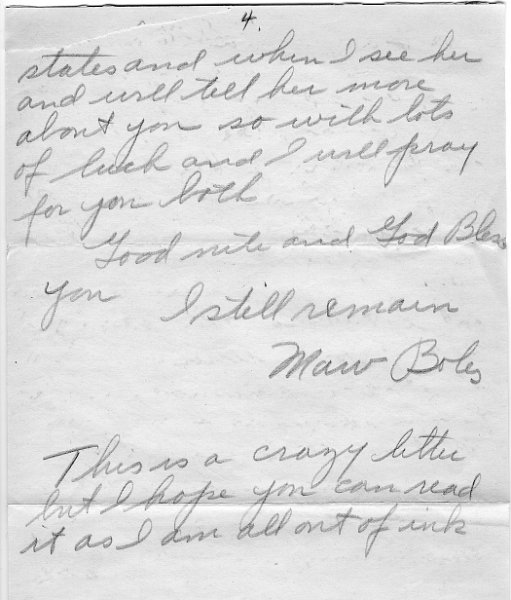 4.
states and when I see her
and will tell her more
about you so with lots
of luck and I will pray
for you both
Good nite and God Bless
you I still remain
Maw Boles
This is a crazy letter
but I hope you can read
it as I am all out of ink